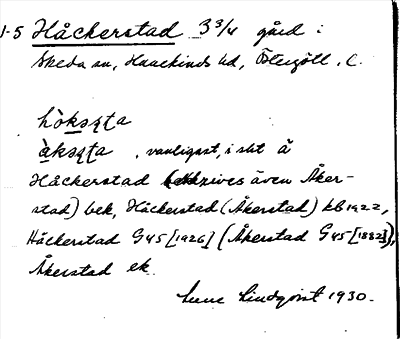 1-5 Håckerstad 3 3/4 gård i
Skeda sn, Hanekinds hd, Östergötl. l.
hòksṭa
àksṭa, vanligast, i slt å
Håckerstad (skrives även Åker-
stad) bek, Håckerstad (Åkerstad) kb 1922,
Håckerstad G45 [1926] (Åkerstad G45 [1882]),
Åkerstad ek.
Sune Lindqvist 1930.